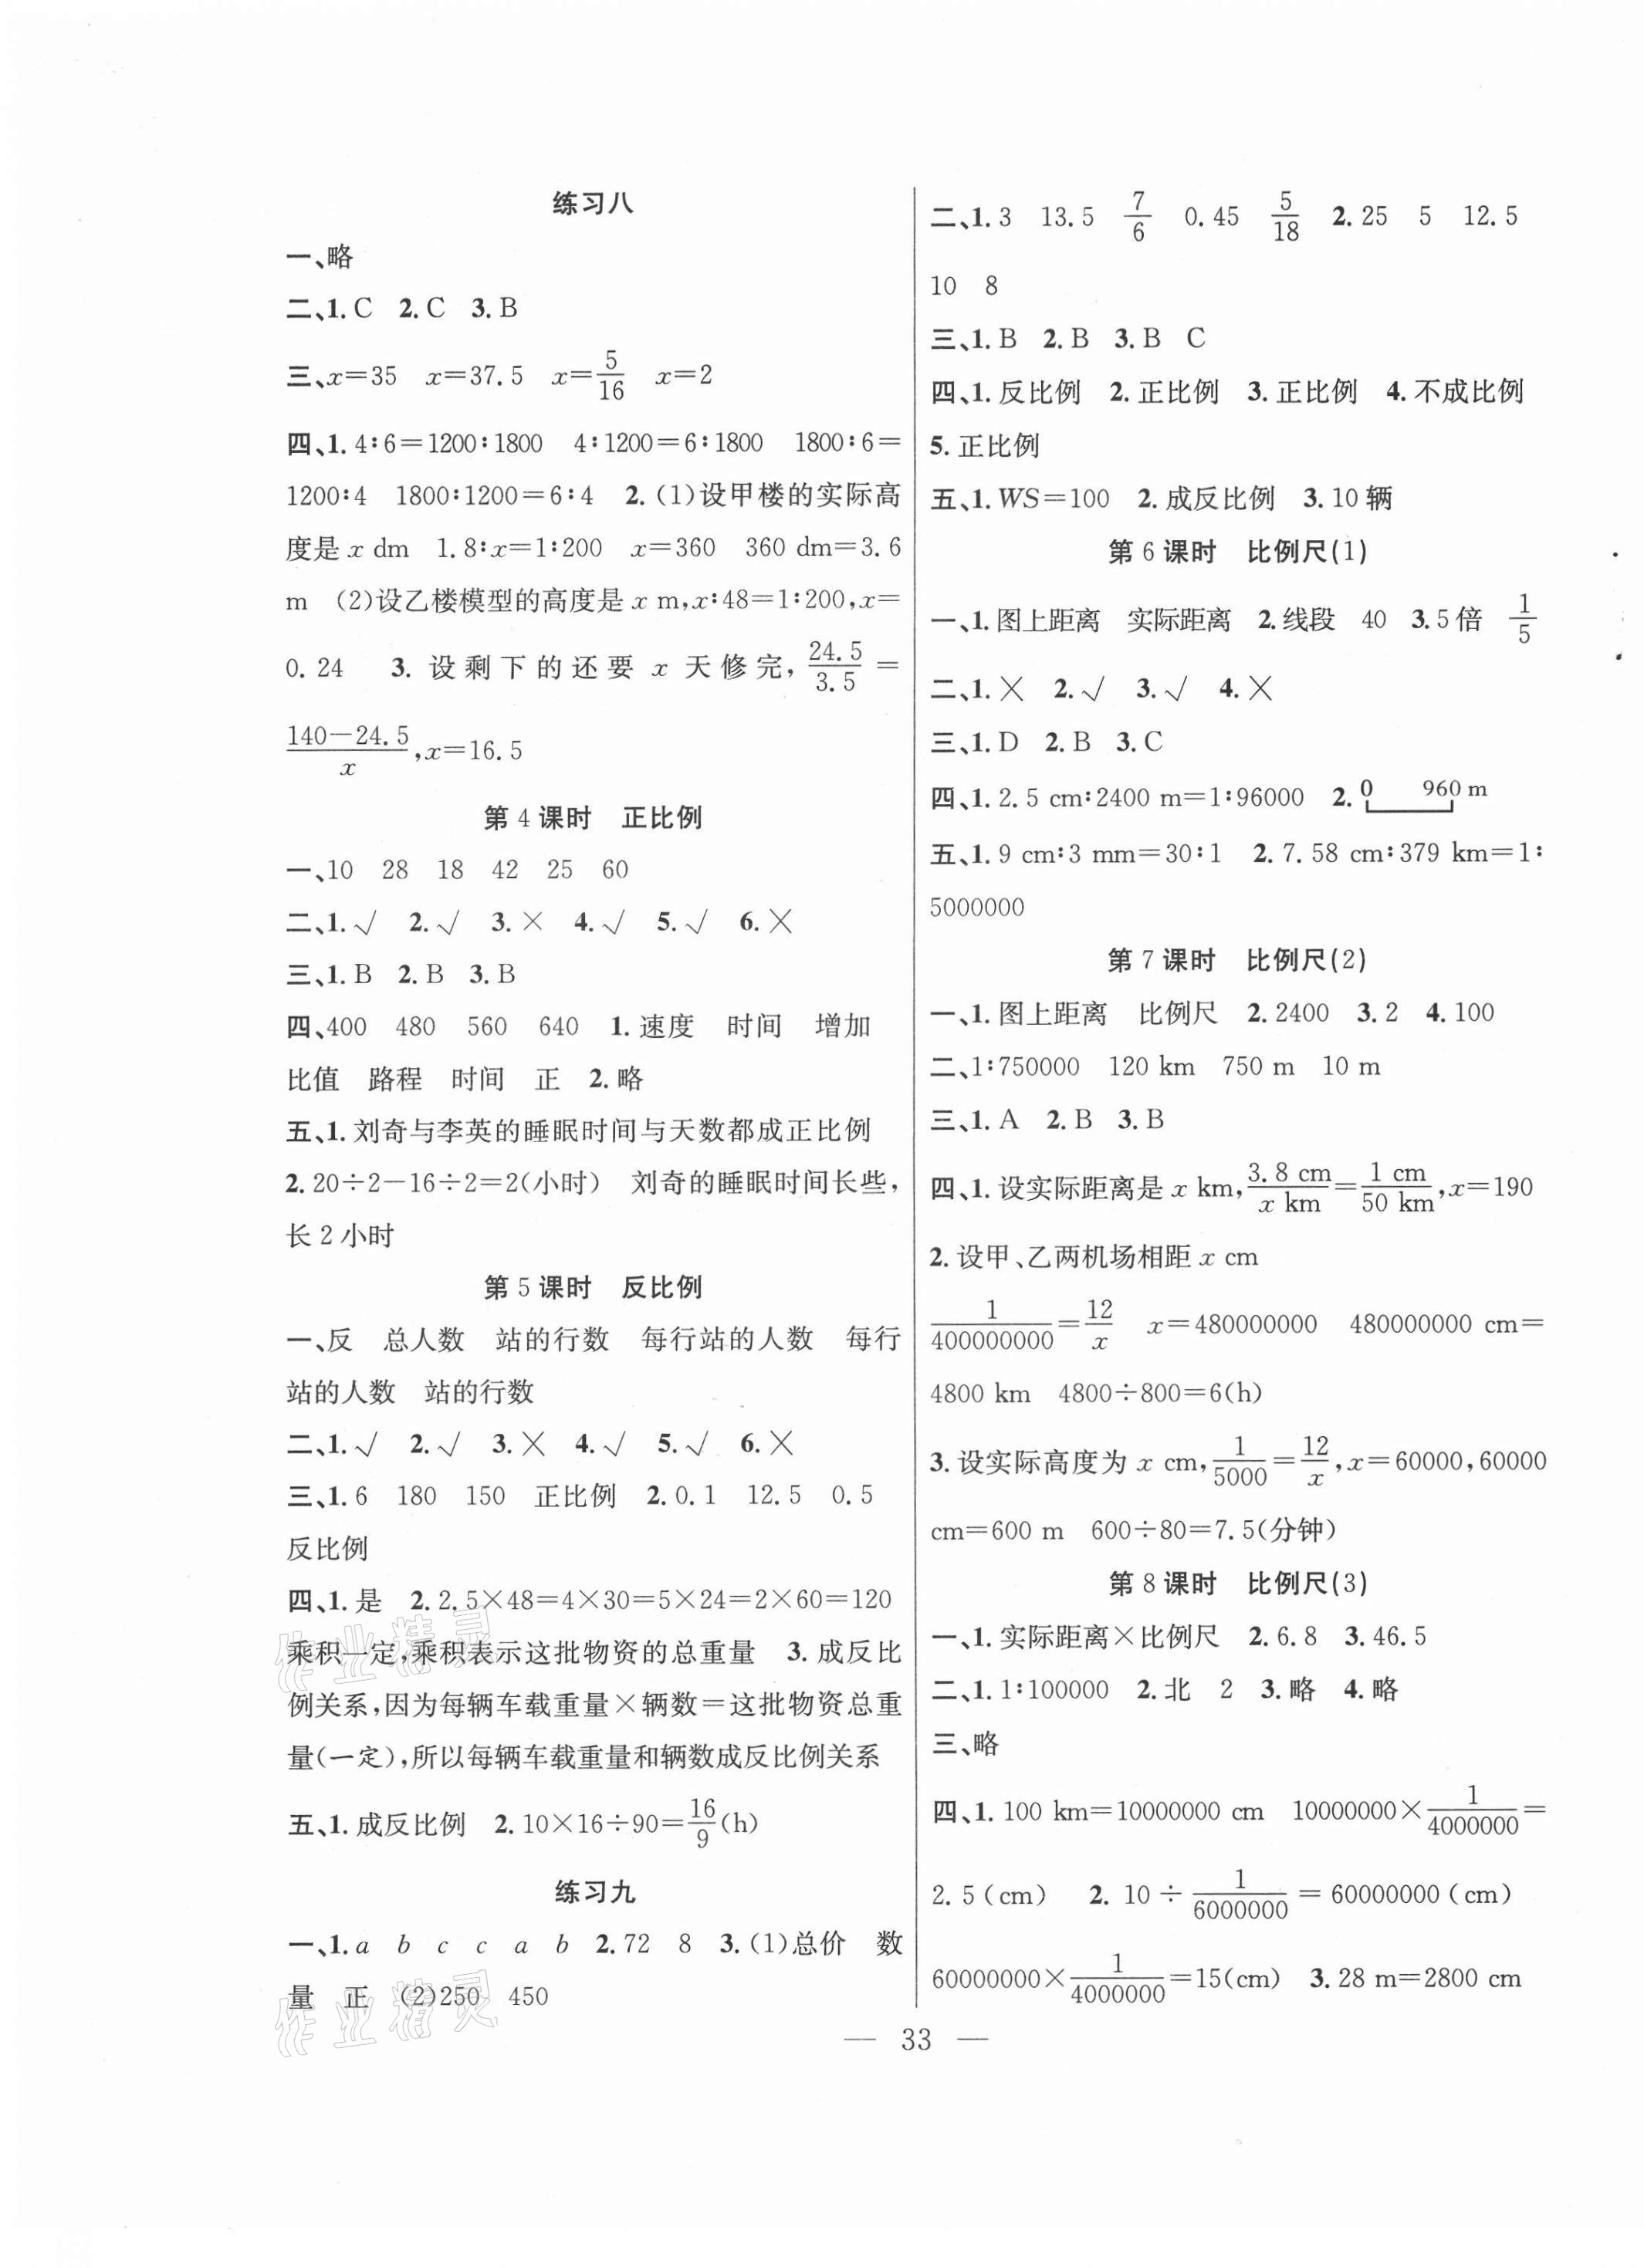 练习八
一、略
二、1. C 2. C 3. B
三、x=35 x=37.5 x=5/16 x=2
四、1. 4∶6=1200∶1800 4∶1200=6∶1800 1800∶6=
1200∶4 1800∶1200=6∶4 2. (1)设甲楼的实际高
度是 x dm 1.8∶x=1∶200 x=360 360 dm=3.6
m (2)设乙楼模型的高度是 x m,x∶48=1∶200,x=
0.24 3. 设剩下的还要 x 天修完,24.5/3.5=
(140-24.5)/x,x=16.5
第 4 课时 正比例
一、10 28 18 42 25 60
二、1. √ 2. √ 3. × 4. √ 5. √ 6. ×
三、1. B 2. B 3. B
四、400 480 560 640 1. 速度 时间 增加
比值 路程 时间 正 2. 略
五、1. 刘奇与李英的睡眠时间与天数都成正比例
2. 20÷2-16÷2=2(小时) 刘奇的睡眠时间长些,
长 2 小时
第 5 课时 反比例
一、反 总人数 站的行数 每行站的人数 每行
站的人数 站的行数
二、1. √ 2. √ 3. × 4. √ 5. √ 6. ×
三、1. 6 180 150 正比例 2. 0.1 12.5 0.5
反比例
四、1. 是 2. 2.5×48=4×30=5×24=2×60=120
乘积一定,乘积表示这批物资的总重量 3. 成反比
例关系,因为每辆车载重量×辆数=这批物资总重
量(一定),所以每辆车载重量和辆数成反比例关系
五、1. 成反比例 2. 10×16÷90=16/9(h)
练习九
一、1. a b c c a b 2. 72 8 3. (1)总价 数
量 正 (2)250 450
二、1. 3 13.5 7/6 0.45 5/18 2. 25 5 12.5
10 8
三、1. B 2. B 3. B C
四、1. 反比例 2. 正比例 3. 正比例 4. 不成比例
5. 正比例
五、1. WS=100 2. 成反比例 3. 10 辆
第 6 课时 比例尺(1)
一、1. 图上距离 实际距离 2. 线段 40 3. 5倍 1/5
二、1. × 2. √ 3. √ 4. ×
三、1. D 2. B 3. C
四、1. 2.5 cm∶2400 m=1∶96000 2. 0 960 m
五、1. 9 cm∶3 mm=30∶1 2. 7.58 cm∶379 km=1∶
5000000
第 7 课时 比例尺(2)
一、1. 图上距离 比例尺 2. 2400 3. 2 4. 100
二、1∶750000 120 km 750 m 10 m
三、1. A 2. B 3. B
四、1. 设实际距离是 x km,3.8 cm/x km=1 cm/50 km,x=190
2. 设甲、乙两机场相距 x cm
1/400000000=12/x x=480000000 480000000 cm=
4800 km 4800÷800=6(h)
3. 设实际高度为 x cm,1/5000=12/x,x=60000,60000
cm=600 m 600÷80=7.5(分钟)
第 8 课时 比例尺(3)
一、1. 实际距离×比例尺 2. 6.8 3. 46.5
二、1. 1∶100000 2. 北 2 3. 略 4. 略
三、略
四、1. 100 km=10000000 cm 10000000×1/4000000=
2.5(cm) 2. 10÷1/6000000=60000000(cm)
60000000×1/4000000=15(cm) 3. 28 m=2800 cm
— 33 —
作业精灵
作业精灵